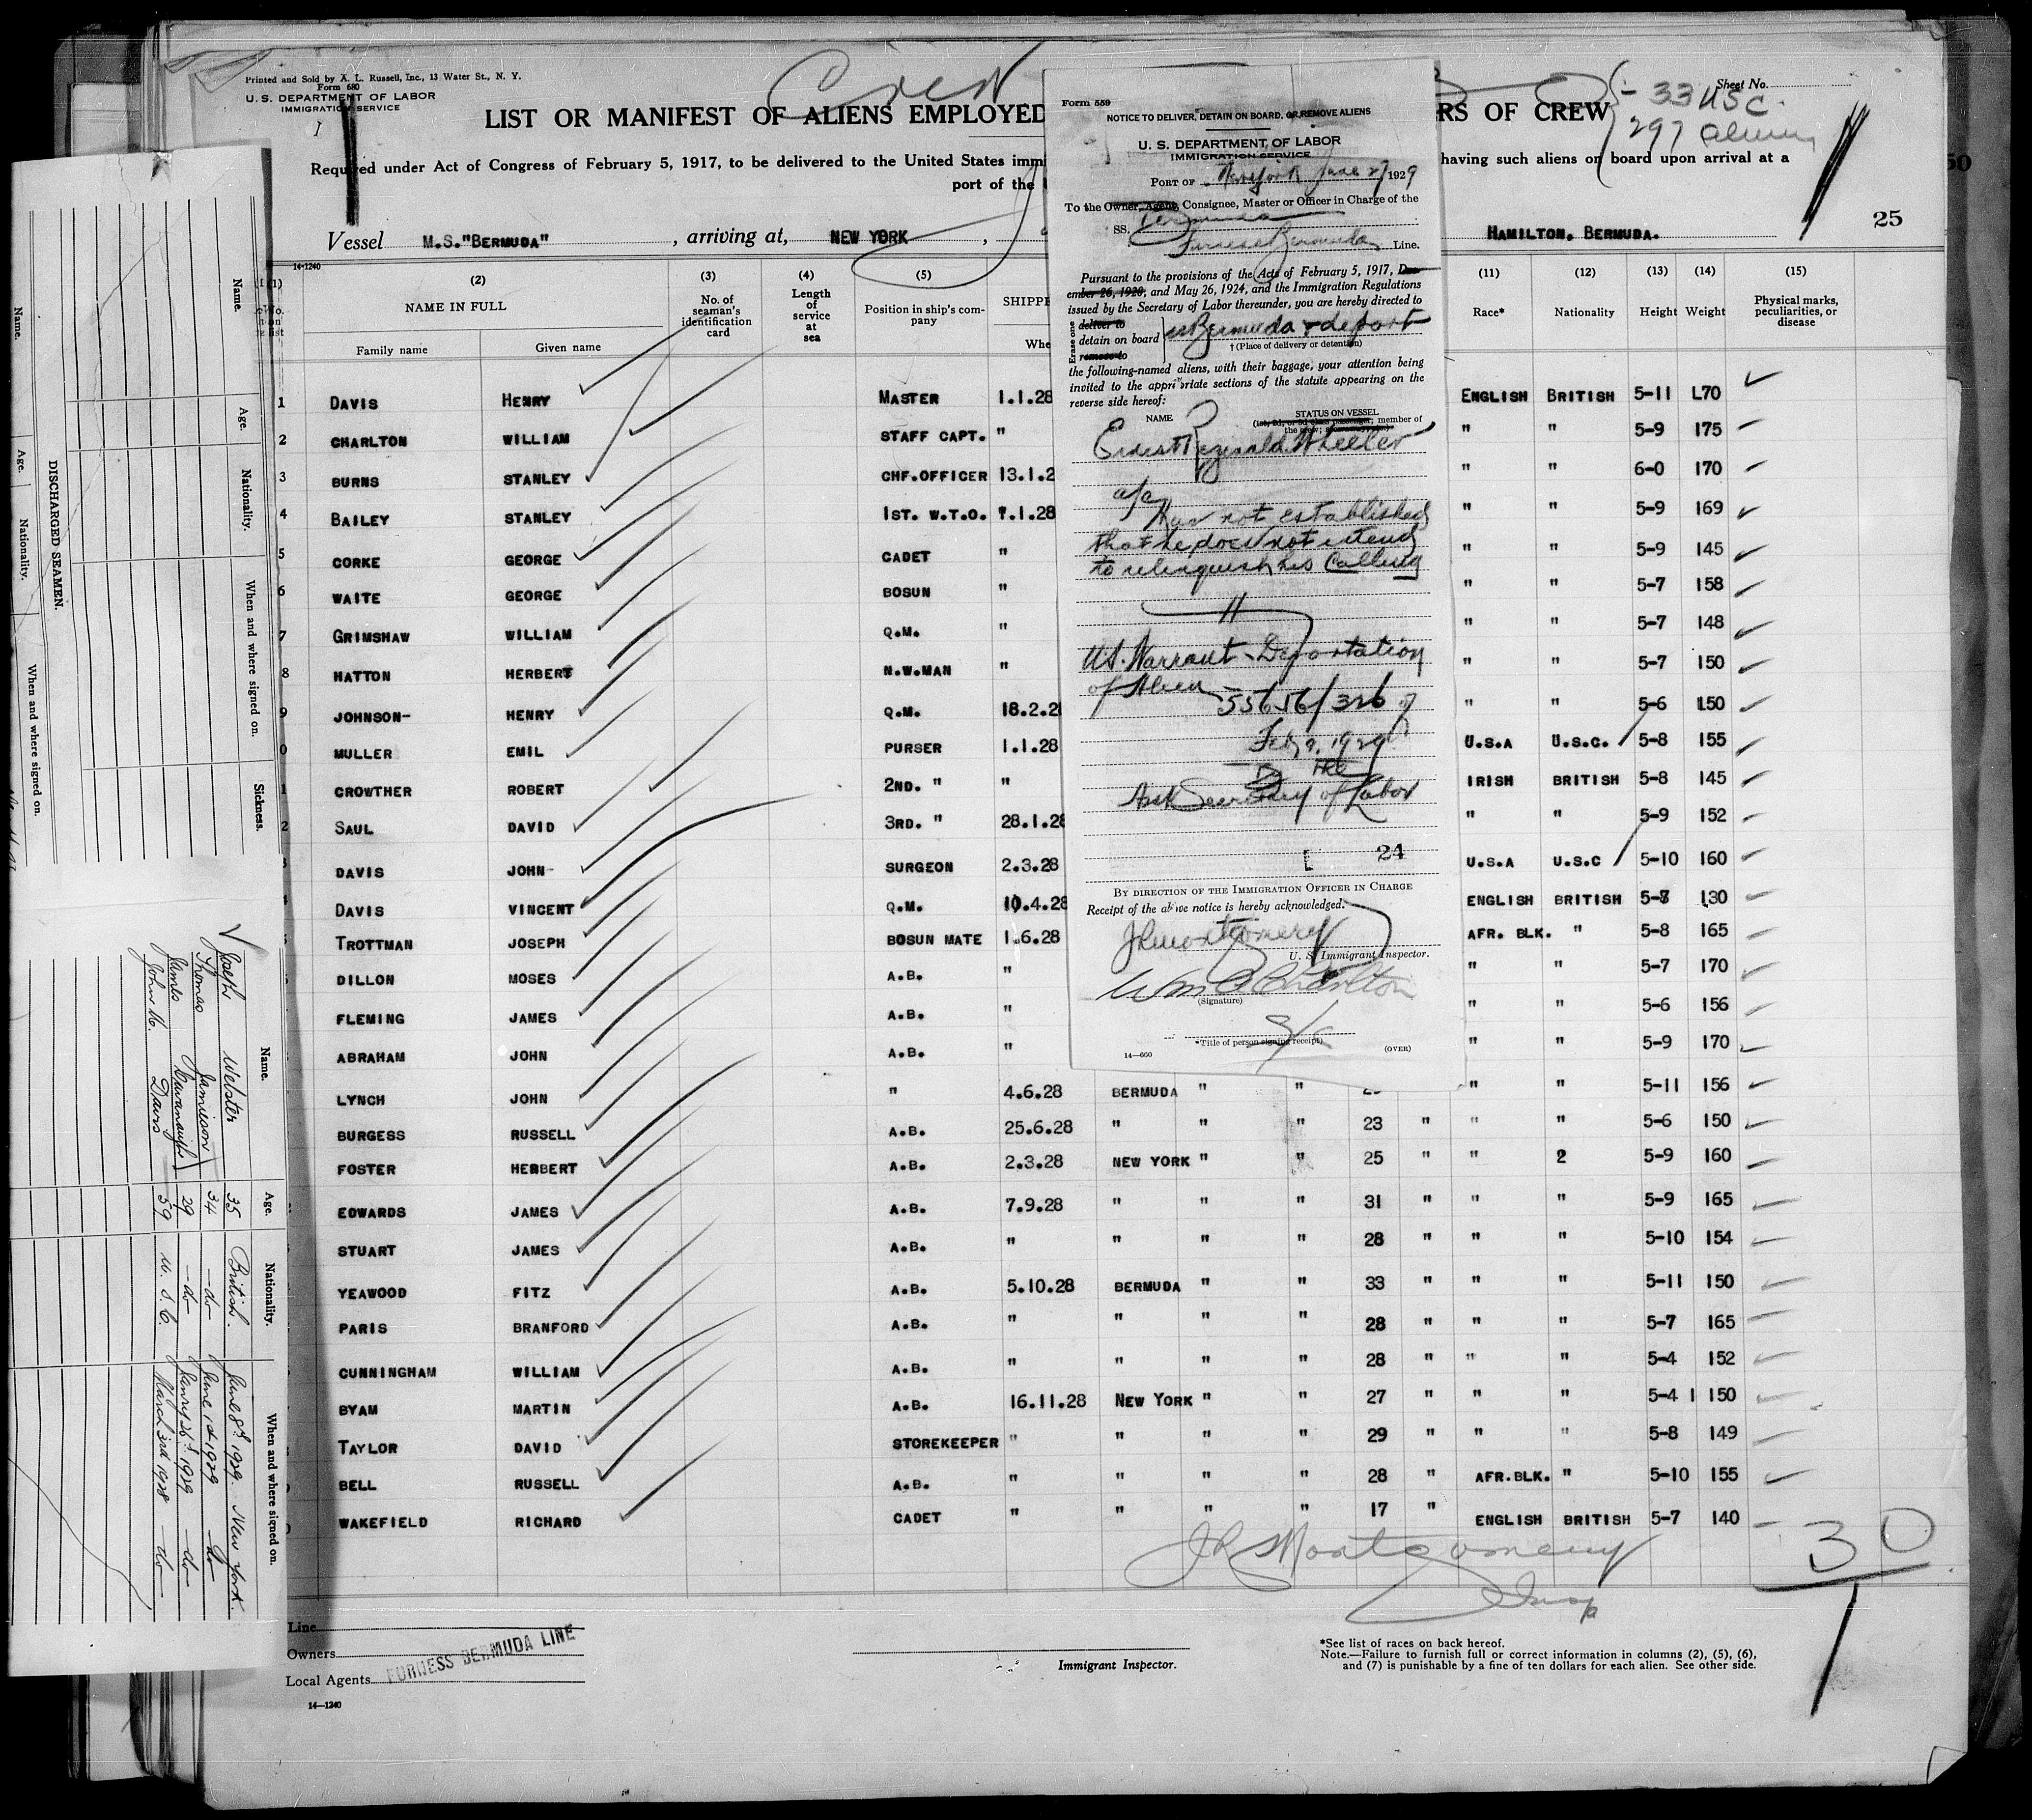 Printed and Sold by A. L. Russell, Inc., 13 Water St., N. Y.
Form 680
U. S. DEPARTMENT OF LABOR
IMMIGRATION SERVICE
Crew
Sheet No.
33 USC.
297 aliens
LIST OR MANIFEST OF ALIENS EMPLOYED
RS OF CREW
Required under Act of Congress of February 5, 1917, to be delivered to the United States immi
having such aliens on board upon arrival at a
port of the
50
25
Vessel M.S."BERMUDA" , arriving at, NEW YORK ,
HAMILTON, BERMUDA.
14-1240
(1) (2) (3) (4) (5) (11) (12) (13) (14) (15)
NAME IN FULL
Family name Given name
No. of seaman's identification card
Length of service at sea
Position in ship's company
SHIPPE
Whe
Race* Nationality Height Weight
Physical marks, peculiarities, or disease
1 DAVIS HENRY MASTER 1.1.28 ENGLISH BRITISH 5-11 L70
2 CHARLTON WILLIAM STAFF CAPT. " " " 5-9 175
3 BURNS STANLEY CHF.OFFICER 13.1.2 " " 6-0 170
4 BAILEY STANLEY 1ST. W.T.O. .1.28 " " 5-9 169
5 CORKE GEORGE CADET " " " 5-9 145
6 WAITE GEORGE BOSUN " " " 5-7 158
7 GRIMSHAW WILLIAM Q.M. " " " 5-7 148
8 HATTON HERBERT N.W.MAN " " " 5-7 150
9 JOHNSON- HENRY Q.M. 18.2.2 " " 5-6 150
0 MULLER EMIL PURSER 1.1.28 U.S.A U.S.C. 5-8 155
1 CROWTHER ROBERT 2ND. " " IRISH BRITISH 5-8 145
2 SAUL DAVID 3RD. " 28.1.28 " " 5-9 152
DAVIS JOHN SURGEON 2.3.28 U.S.A U.S.C 5-10 160
DAVIS VINCENT Q.M. 10.4.28 ENGLISH BRITISH 130
TROTTMAN JOSEPH BOSUN MATE 1.6.28 AFR. BLK. " 5-8 165
DILLON MOSES A.B. " " " 5-7 170
FLEMING JAMES A.B. " " " 5-6 156
ABRAHAM JOHN A.B. " " " 5-9 170
LYNCH JOHN " 4.6.28 BERMUDA " " " " 5-11 156
BURGESS RUSSELL A.B. 25.6.28 " " " 23 " " " 5-6 150
FOSTER HERBERT A.B. 2.3.28 NEW YORK " " 25 " " 2 5-9 160
EDWARDS JAMES A.B. 7.9.28 " " " 31 " " " 5-9 165
STUART JAMES A.B. " " " " 28 " " " 5-10 154
YEAWOOD FITZ A.B. 5.10.28 BERMUDA " " 33 " " " 5-11 150
PARIS BRANFORD A.B. " " " " 28 " " " 5-7 165
CUNNINGHAM WILLIAM A.B. " " " " 28 " " " 5-4 152
BYAM MARTIN A.B. 16.11.28 NEW YORK " " 27 " " " 5-4 150
TAYLOR DAVID STOREKEEPER " " " " 29 " " " 5-8 149
BELL RUSSELL A.B. " " " " 28 " AFR.BLK. " 5-10 155
WAKEFIELD RICHARD CADET " " " " 17 " ENGLISH BRITISH 5-7 140
30
JR Montgomery
Insp
Line
Owners
Local Agents
FURNESS BERMUDA LINE
Immigrant Inspector.
*See list of races on back hereof.
Note.—Failure to furnish full or correct information in columns (2), (5), (6),
and (7) is punishable by a fine of ten dollars for each alien. See other side.
14—1240
Form 559
NOTICE TO DELIVER, DETAIN ON BOARD, OR REMOVE ALIENS
U. S. DEPARTMENT OF LABOR
IMMIGRATION SERVICE
PORT OF New York June 2 1929
To the Owner, Agent, Consignee, Master or Officer in Charge of the
SS. Bermuda
Furness Bermuda Line.
Pursuant to the provisions of the Acts of February 5, 1917, Dec-
ember 26, 1920, and May 26, 1924, and the Immigration Regulations
issued by the Secretary of Labor thereunder, you are hereby directed to
Erase one
deliver to
detain on board
remove to
ss Bermuda & deport
† (Place of delivery or detention)
the following-named aliens, with their baggage, your attention being
invited to the appropriate sections of the statute appearing on the
reverse side hereof:
NAME STATUS ON VESSEL
(1st, 2d, or 3d class passenger; member of
the crew;
Ernest Reginald Wheeler
a/c
Has not established
that he does not intend
to relinquish his Calling
US. Warrant - Deportation
of Alien
55656/326 of
Feb 9, 1929
By the
Asst Secretary of Labor
24
BY DIRECTION OF THE IMMIGRATION OFFICER IN CHARGE
Receipt of the above notice is hereby acknowledged.
JR Montgomery
U. S. Immigrant Inspector.
Wm A Charlton
(Signature)
S/C
*Title of person signing receipt)
14—660
(OVER)
DISCHARGED SEAMEN.
Name. Age. Nationality. When and where signed on. Sickness.
Name. Age. Nationality. When and where signed on.
Name. Age. Nationality. When and where signed on.
Joseph Webster 35 British. June 8th 1929. New York.
Thomas Jamieson 34 -do- June 1st 1929 -do-
James Kavanaugh 29 -do- 1929 -do-
John M. Davis 59 U. S. C. March 3rd 1928 -do-